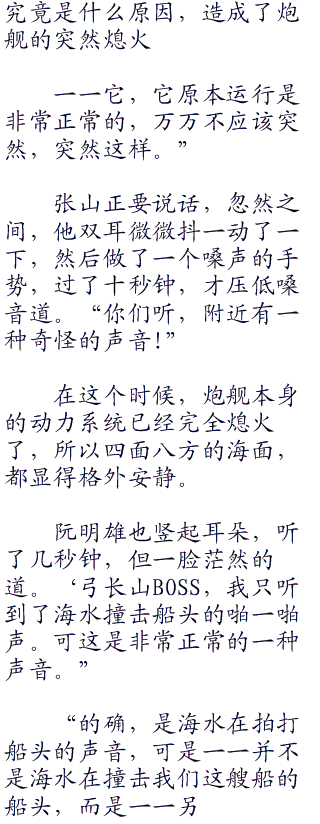 究竟是什么原因，造成了炮
舰的突然熄火
一一它，它原本运行是
非常正常的，万万不应该突
然，突然这样。”
张山正要说话，忽然之
间，他双耳微微抖一动了一
下，然后做了一个嗓声的手
势，过了十秒钟，才压低嗓
音道。“你们听，附近有一
种奇怪的声音!”
在这个时候，炮舰本身
的动力系统已经完全熄火
了，所以四面八方的海面，
都显得格外安静。
阮明雄也竖起耳朵，听
了几秒钟，但一脸茫然的
道。‘弓长山BOSS，我只听
到了海水撞击船头的啪一啪
声。可这是非常正常的一种
声音。”
“的确，是海水在拍打
船头的声音，可是一一并不
是海水在撞击我们这艘船的
船头，而是一一另